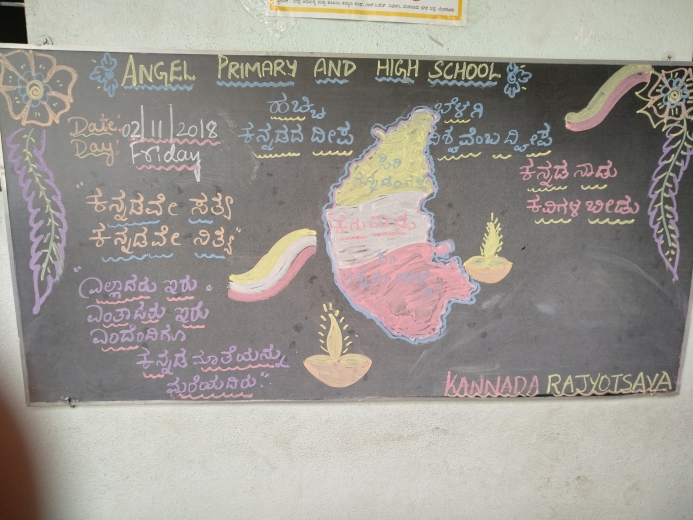 ANGEL PRIMARY AND HIGH SCHOOL
Date: 02/11/2018
Day: Friday
ಹಚ್ಚು ಬೆಳಗಿ
ಕನ್ನಡದ ದೀಪ ವಿಶ್ವವೆಂಬ ದ್ವೀಪ
ಸಿರಿ
ಕನ್ನಡ ನಾಡು
ಕವಿಗಳ ಬೀಡು
"ಕನ್ನಡವೇ ಸತ್ಯ
ಕನ್ನಡವೇ ನಿತ್ಯ"
"ಎಲ್ಲಾದರು ಇರು
ಎಂತಾದರು ಇರು
ಎಂದೆಂದಿಗೂ
ಕನ್ನಡ ಮಾತೆಯನ್ನು
ಮರೆಯದಿರು"
KANNADA RAJYOTSAVA